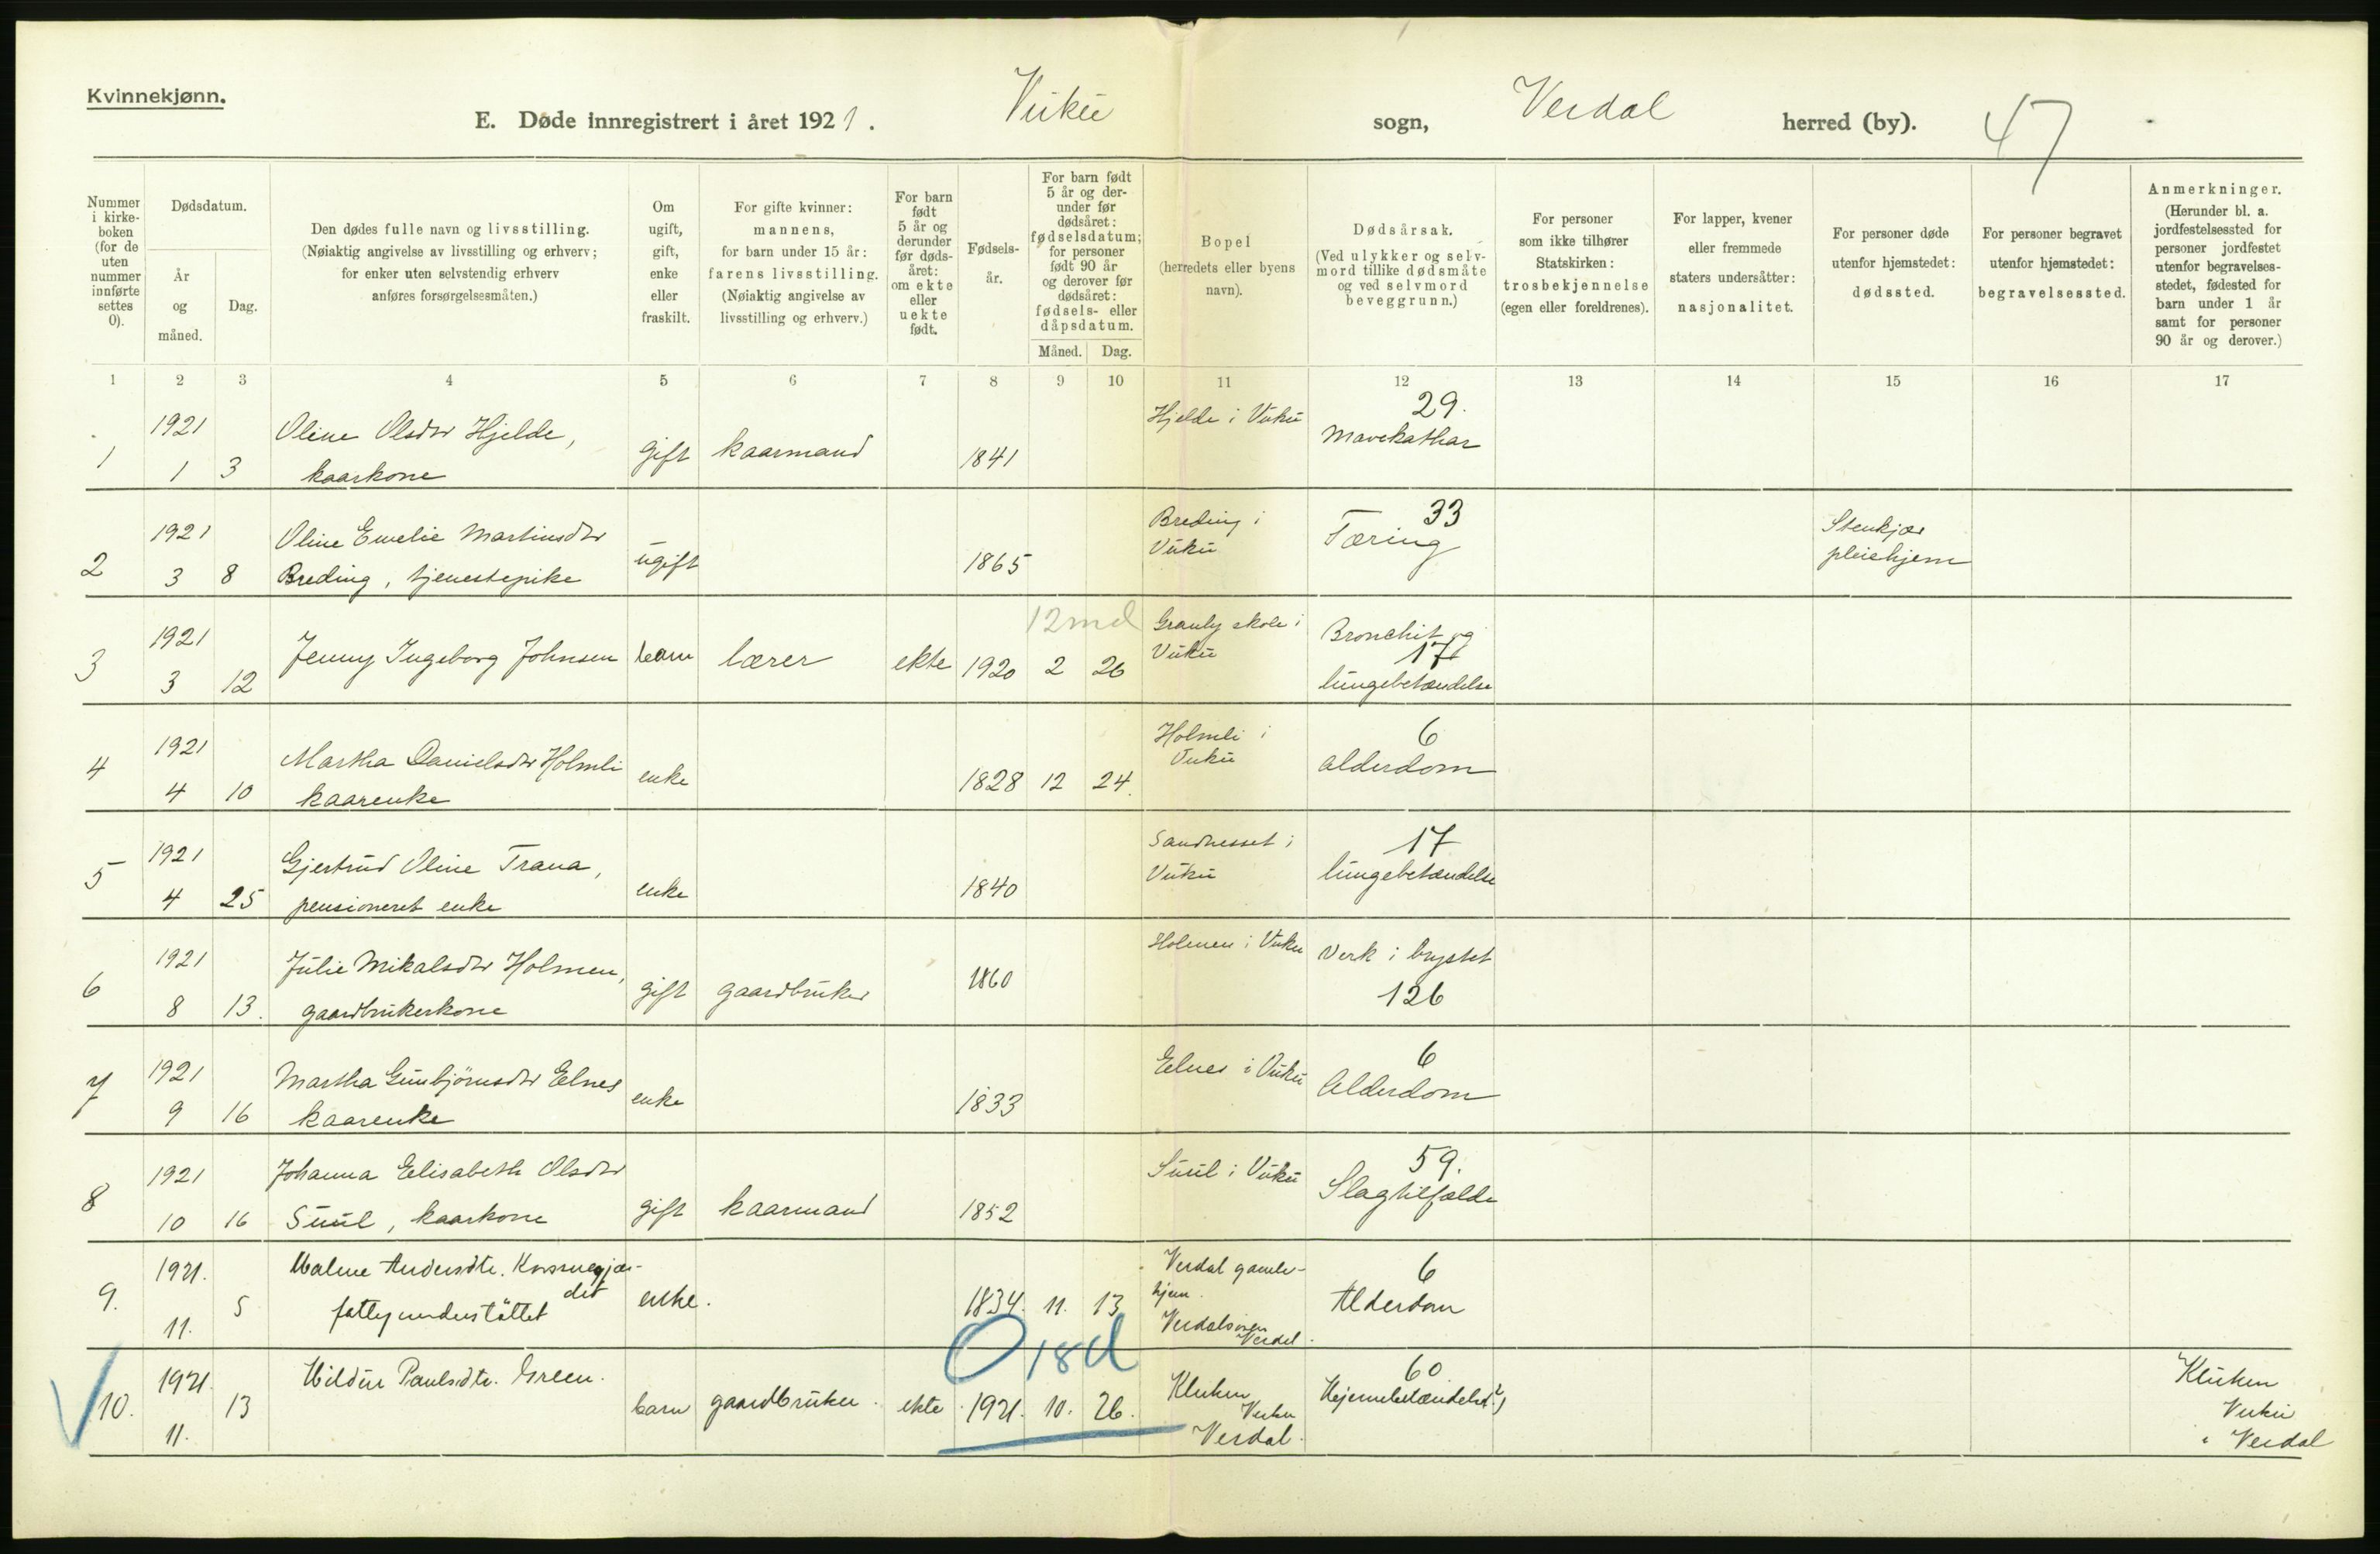 Kvinnekjønn.
E. Døde innregistrert i året 1921. Vuku sogn, Verdal herred (by). 47
Nummer i kirke- boken (for de uten nummer innførte settes 0).
Dødsdatum.
År og måned.
Dag.
Den dødes fulle navn og livsstilling.
(Nøiaktig angivelse av livsstilling og erhverv;
for enker uten selvstendig erhverv
anføres forsørgelsesmåten.)
Om ugift, gift, enke eller fraskilt.
For gifte kvinner:
mannens,
for barn under 15 år:
farens livsstilling.
(Nøiaktig angivelse av
livsstilling og erhverv.)
For barn født 5 år og derunder før døds- året: om ekte eller uekte født.
Fødsels- år.
For barn født 5 år og der- under før dødsåret: fødselsdatum; for personer født 90 år og derover før dødsåret: fødsels- eller dåpsdatum.
Måned. Dag.
Bopel
(herredets eller byens
navn).
Dødsårsak.
(Ved ulykker og selv-
mord tillike dødsmåte
og ved selvmord
beveggrunn.)
For personer
som ikke tilhører
Statskirken:
trosbekjennelse
(egen eller foreldrenes).
For lapper, kvener
eller fremmede
staters undersåtter:
nasjonalitet.
For personer døde
utenfor hjemstedet:
dødssted.
For personer begravet
utenfor hjemstedet:
begravelsessted.
Anmerkninger.
(Herunder bl. a.
jordfestelsessted for
personer jordfestet
utenfor begravelses-
stedet, fødested for
barn under 1 år
samt for personer
90 år og derover.)
1 2 3 4 5 6 7 8 9 10 11 12 13 14 15 16 17
1 1921 1 3 Oline Olsdtr Hjelde,
kaarkone gift kaarmand 1841 Hjelde i Vuku 29.
Mavekathar
2 1921 3 8 Oline Emelie Martinsdtr
Breding, tjenestepike ugift 1865 Breding i
Vuku 33
Tæring Stenkjær
pleiehjem
3 1921 3 12 Jenny Ingeborg Johnsen barn lærer ekte 1920 2 26 12 md Granly skole i
Vuku Bronchit og
17
lungebetændelse
4 1921 4 10 Martha Danielsdtr Holmli
kaarenke enke 1828 12 24. Holmli i
Vuku 6
alderdom
5 1921 4 25 Gjertrud Oline Trana,
pensioneret enke enke 1840 Sandnesset i
Vuku 17
lungebetændelse
6 1921 8 13. Julie Mikalsdtr Holmen,
gaardbrukerkone gift gaardbruker 1860 Holmen i Vuku Verk i brystet
126
7 1921 9 16 Martha Gunbjörnsdtr Eelnes
kaarenke enke 1833 Eelnes i Vuku 6
Alderdom
8 1921 10 16 Johanna Elisabeth Olsdtr
Suul, kaarkone gift kaarmand 1852 Suul i Vuku 59.
Slagtilfælde
9. 1921. 11. 5 Malene Andersdtr.
fattigunderstöttet enke. 1834. 11. 13 Verdal gamle-
hjem.
Verdalsøren
Verdal. 6
Alderdom
10. 1921. 11. 13 Hildur Paulsdtr. Green. barn gaardbruker. ekte 1921. 10. 26. 0 18d Kluken
Vuku
Verdal. 60
Hjernebetændelse(?)
Kluken
Vuku
i Verdal